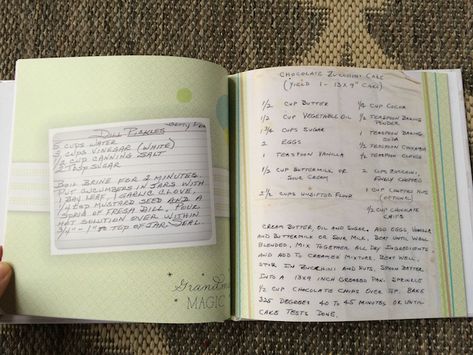 Dill Pickles
5 cups water
cups vinegar (white)
cup canning salt
sugar
Boil brine for 2 minutes.
Put cucumbers in jars with
1 bay leaf, 1 garlic clove,
mustard seed and a
sprig of fresh dill. Pour
hot solution over within
1" to top of jar. Seal.
Grandma
MAGIC
Chocolate Zucchini Cake
(Yield 1 - 13x9" cake)
1/2 cup butter
1/2 cup vegetable oil
1 3/4 cups sugar
2 eggs
1 teaspoon vanilla
1/2 cup buttermilk or
sour cream
2 1/2 cups unsifted flour
cup cocoa
1/2 teaspoon baking
powder
1 teaspoon baking
soda
1/2 teaspoon cinnamon
1/2 teaspoon cloves
2 cups zucchini,
finely
1 cup chopped nuts
(optional)
1/2 cup chocolate
chips
Cream butter, oil and sugar. Add eggs, vanilla
and buttermilk or sour milk. Beat until well
blended. Mix together all dry ingredients
and add to creamed mixture. Beat well.
Stir in zucchini and nuts. Spoon batter
into a 13x9 inch greased pan. Sprinkle
1/2 cup chocolate chips over top. Bake
325 degrees 40 to 45 minutes or until
cake tests done.